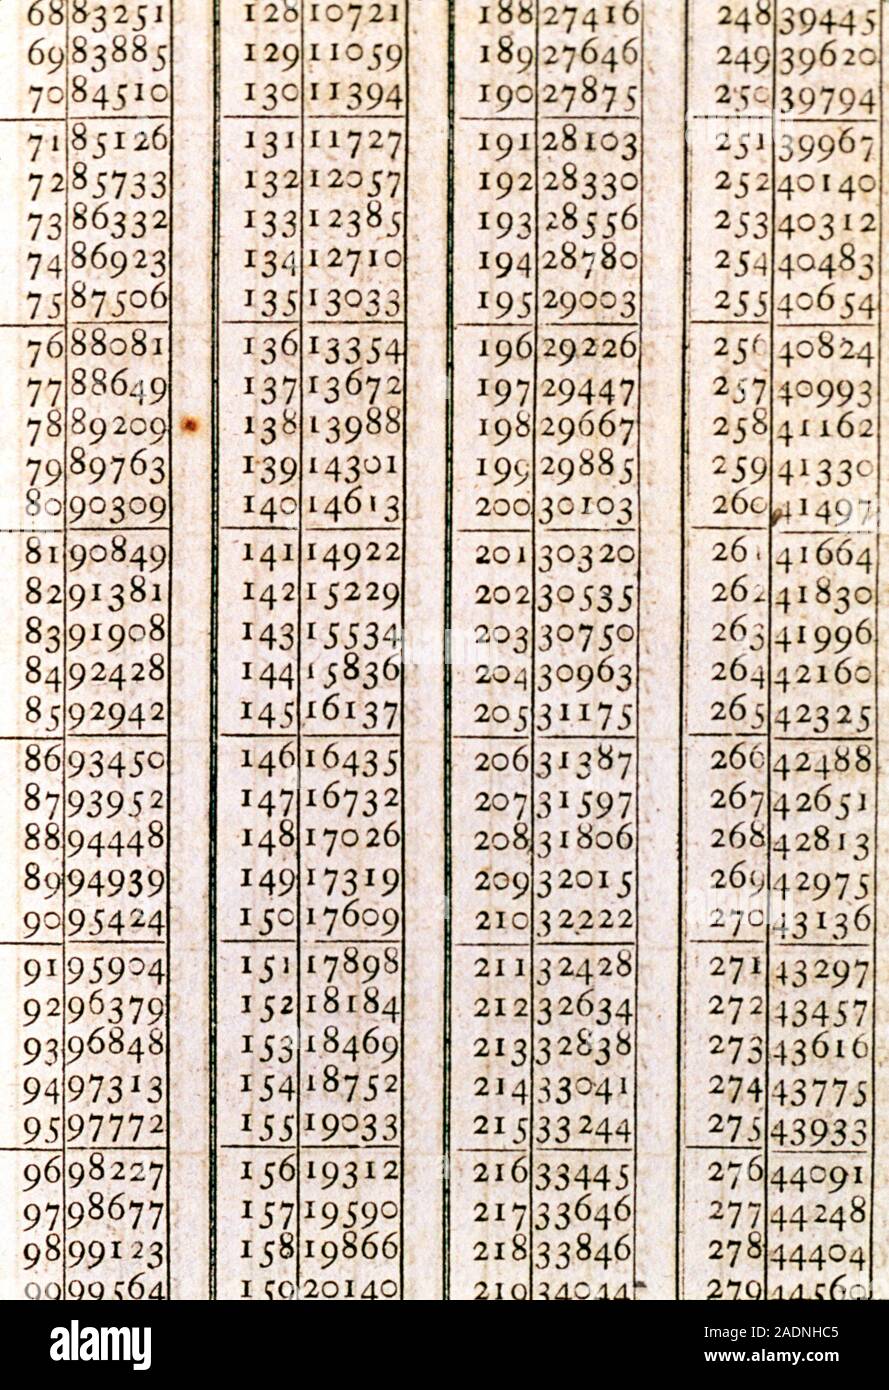 68 83251 128 10721 188 27416 248 39445
69 83885 129 11059 189 27646 249 39620
70 84510 130 11394 190 27875 250 39794
71 85126 131 11727 191 28103 251 39967
72 85733 132 12057 192 28330 252 40140
73 86332 133 12385 193 28556 253 40312
74 86923 134 12710 194 28780 254 40483
75 87506 135 13033 195 29003 255 40654
76 88081 136 13354 196 29226 256 40824
77 88649 137 13672 197 29447 257 40993
78 89209 138 13988 198 29667 258 41162
79 89763 139 14301 199 29885 259 41330
80 90309 140 14613 200 30103 260 41497
81 90849 141 14922 201 30320 261 41664
82 91381 142 15229 202 30535 262 41830
83 91908 143 15534 203 30750 263 41996
84 92428 144 15836 204 30963 264 42160
85 92942 145 16137 205 31175 265 42325
86 93450 146 16435 206 31387 266 42488
87 93952 147 16732 207 31597 267 42651
88 94448 148 17026 208 31806 268 42813
89 94939 149 17319 209 32015 269 42975
90 95424 150 17609 210 32222 270 43136
91 95904 151 17898 211 32428 271 43297
92 96379 152 18184 212 32634 272 43457
93 96848 153 18469 213 32838 273 43616
94 97313 154 18752 214 33041 274 43775
95 97772 155 19033 215 33244 275 43933
96 98227 156 19312 216 33445 276 44091
97 98677 157 19590 217 33646 277 44248
98 99123 158 19866 218 33846 278 44404
99 99564 159 20140 219 34044 279 44560
alamy
Image ID: 2ADNHC5
www.alamy.com